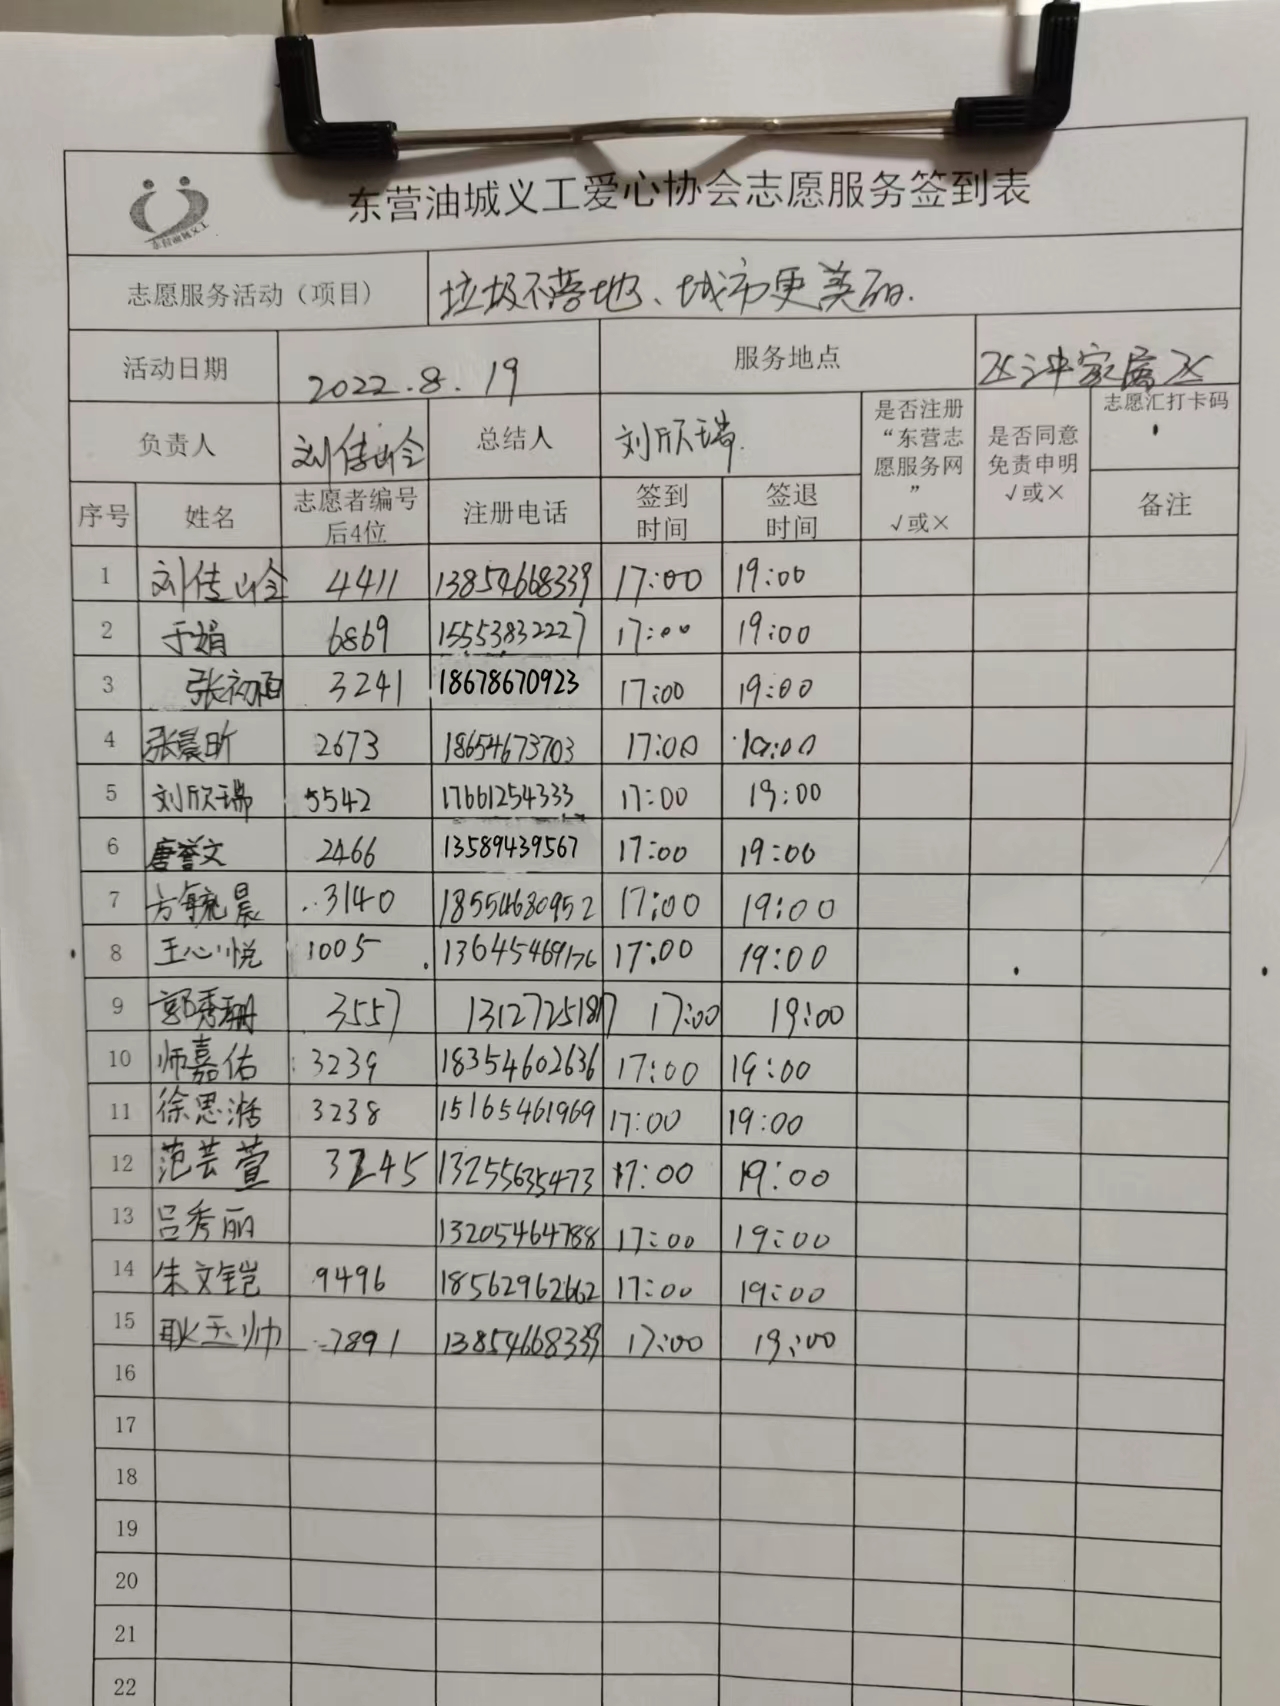 东营油城义工爱心协会志愿服务签到表
东营油城义工
志愿服务活动（项目） 垃圾不落地、城市更美丽.
活动日期 2022.8.19 服务地点 区
负责人 刘传岭 总结人 刘欣瑞. 是否注册“东营志愿服务网” √或× 是否同意免责申明 √或× 志愿汇打卡码
序号 姓名 志愿者编号后4位 注册电话 签到时间 签退时间 备注
1 刘传岭 4411 13854668339 17:00 19:00
2 于娟 6869 15553832227 17:00 19:00
3 张初 3241 18678670923 17:00 19:00
4 张晨昕 2673 18654673703 17:00 19:00
5 刘欣瑞 5542 17661254333 17:00 19:00
6 唐誉文 2466 13589439567 17:00 19:00
7 方毓晨 3140 18554680952 17:00 19:00
8 王心悦 1005 13645469176 17:00 19:00
9 郭秀珊 3557 13127251817 17:00 19:00
10 师嘉佑 3239 18354602636 17:00 19:00
11 徐思湉 3238 15165461969 17:00 19:00
12 范芸萱 3245 13255635473 17:00 19:00
13 吕秀丽 13205464788 17:00 19:00
14 朱文铠 9496 18562962662 17:00 19:00
15 耿玉帅 7891 13854668339 17:00 19:00
16
17
18
19
20
21
22